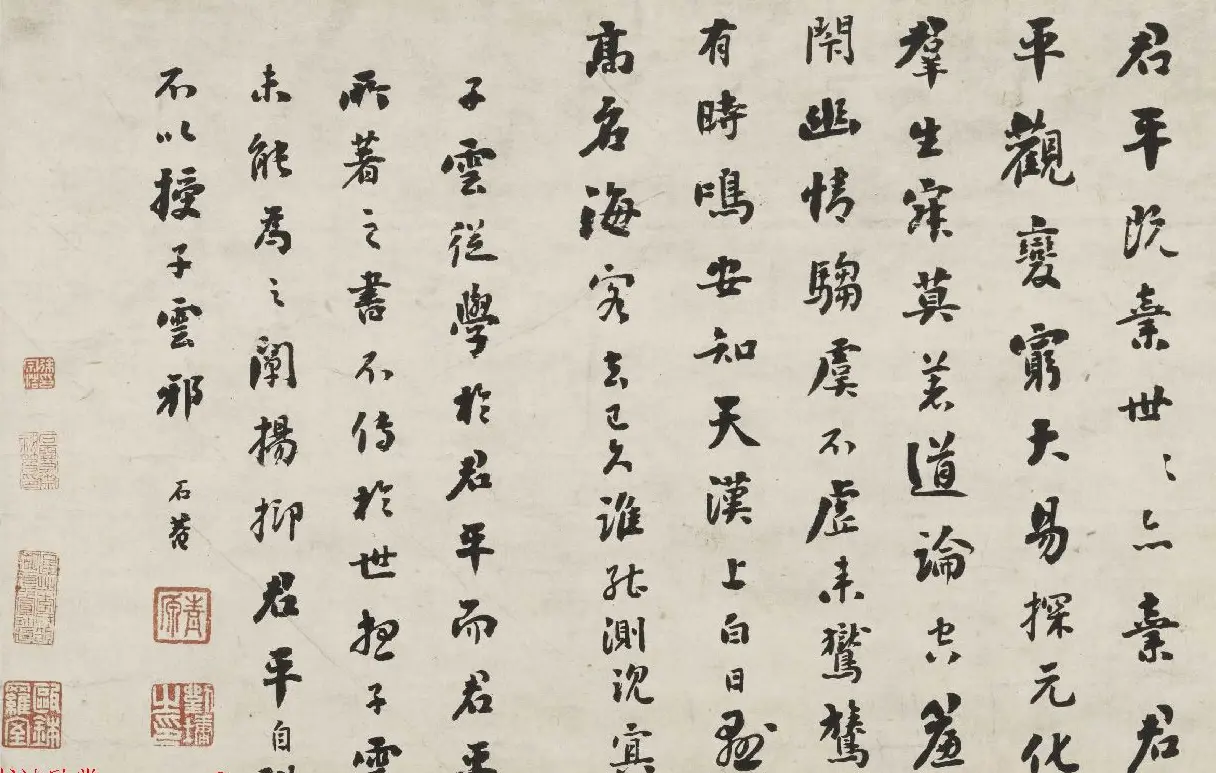 君平既棄世〻亦棄君
平觀變窮大易探元化
羣生寂莫著道論空簾
閉幽情騶虞不虛来鸑鷟
有時鳴安知天漢上白日懸
高名海客去已久誰能測沉冥
子雲從學於君平而君平
所著之書不傳於世想子雲
未能為之闡揚抑君平自
不以授子雲邪
石菴
青原
劉墉之印
歐鉢羅室